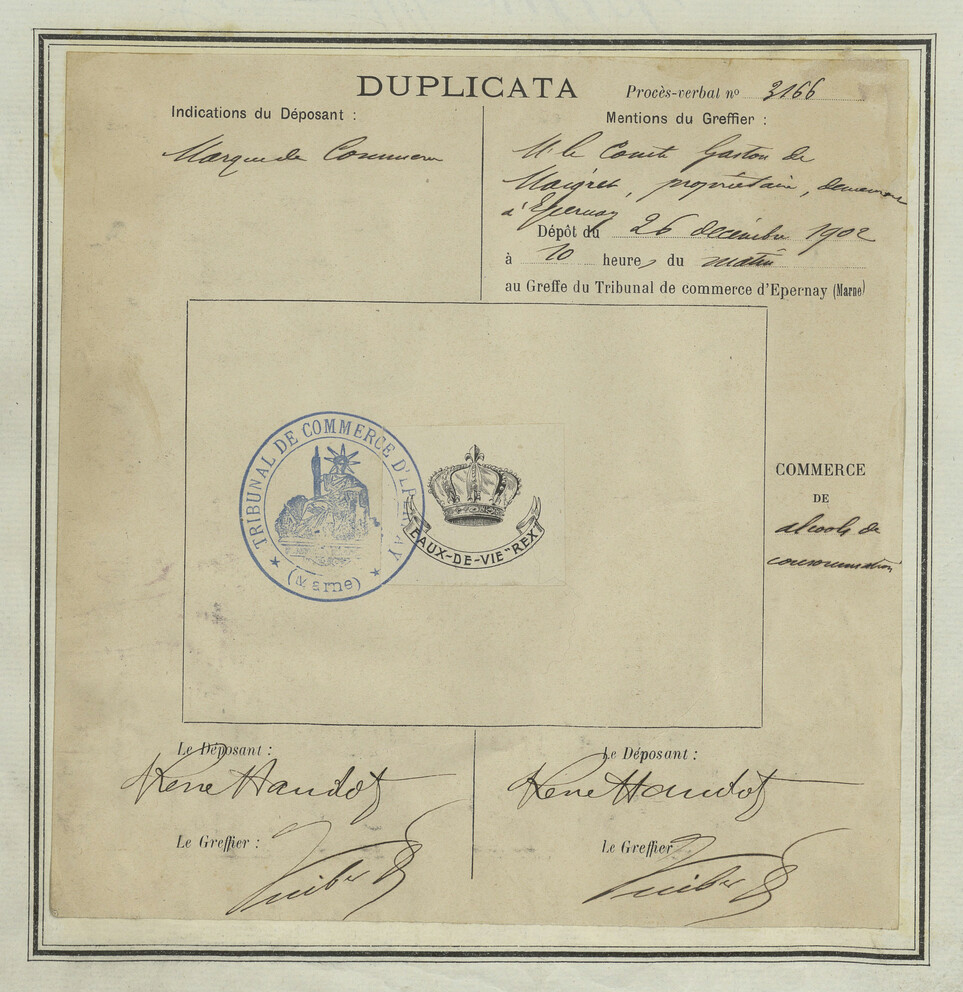 DUPLICATA
Procès-verbal nº 3166
Indications du Déposant :
Marque de Commerce
Mentions du Greffier :
M. le Comte Gaston de
Maigret, propriétaire, demeurant
à Epernay
Dépôt du 26 décembre 1902
à 10 heures du matin
au Greffe du Tribunal de commerce d'Epernay (Marne)
TRIBUNAL DE COMMERCE D'EPERNAY
(Marne)
EAUX-DE-VIE "REX"
COMMERCE
DE
alcools de
consommation
Le Déposant :
René Handot
Le Greffier :
Le Déposant :
René Handot
Le Greffier